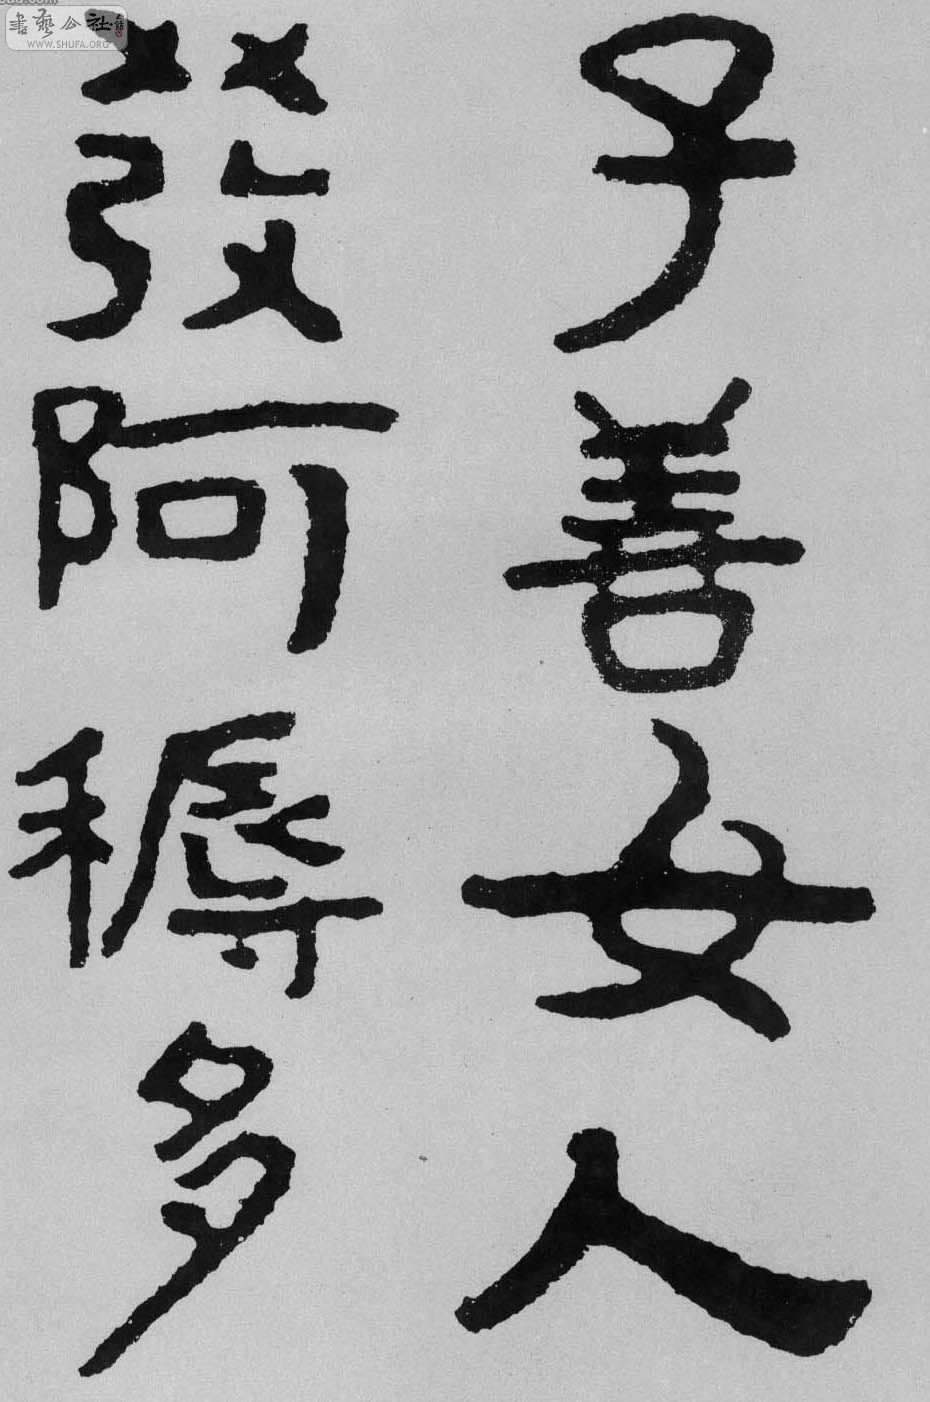 子善女人
發阿耨多
書藝公社
WWW.SHUFA.ORG